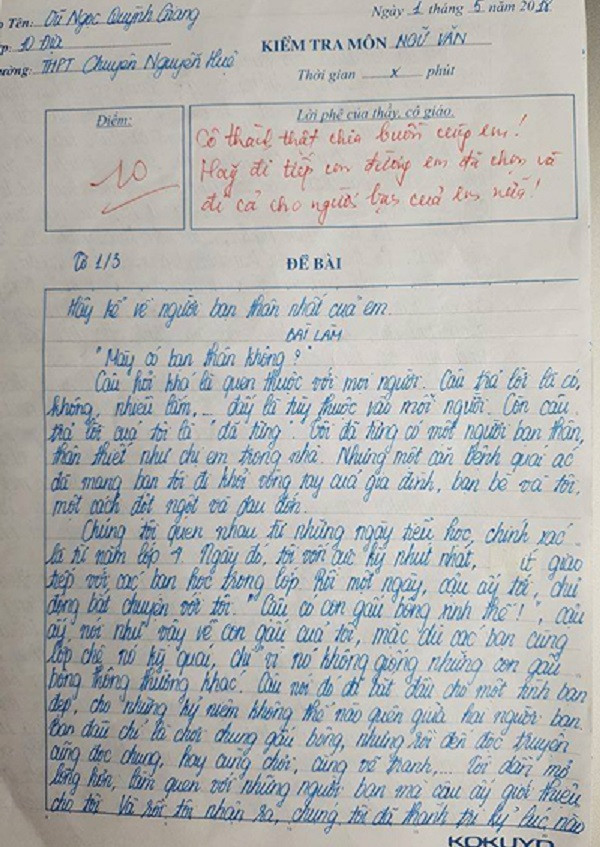 Tên: Vũ Ngọc Quỳnh Giang
Ngày 1 tháng 5 năm 2018
10 Địa
KIỂM TRA MÔN NGỮ VĂN
THPT Chuyên Nguyễn Huệ
Thời gian x phút
Điểm:
Lời phê của thầy, cô giáo.
10
Cô thành thật chia buồn cùng em!
Hãy đi tiếp con đường em đã chọn và
đi cả cho người bạn của em nữa!
Tờ 1/3
ĐỀ BÀI
Hãy kể về người bạn thân nhất của em.
BÀI LÀM
"Mày có bạn thân không?"
Câu hỏi khá là quen thuộc với mọi người. Câu trả lời là có,
không, nhiều lắm,... đấy là tùy thuộc vào mỗi người. Còn câu
trả lời của tôi là "đã từng". Tôi đã từng có một người bạn thân,
thân thiết như chị em trong nhà. Nhưng một căn bệnh quái ác
đã mang bạn tôi đi khỏi vòng tay của gia đình, bạn bè và tôi,
một cách đột ngột và đau đớn.
Chúng tôi quen nhau từ những ngày tiểu học, chính xác
là từ năm lớp 4. Ngày đó, tôi vốn cực kỳ nhút nhát, ít giao
tiếp với các bạn học trong lớp. Rồi một ngày, cậu ấy tới, chủ
động bắt chuyện với tôi. "Cậu có con gấu bông xinh thế!", cậu
ấy nói như vậy về con gấu của tôi, mặc dù các bạn cùng
lớp chê nó kỳ quái, chỉ vì nó không giống những con gấu
bông thông thường khác. Câu nói đó đã bắt đầu cho một tình bạn
đẹp, cho những kỷ niệm không thể nào quên giữa hai người bạn.
Ban đầu chỉ là chơi chung gấu bông, nhưng rồi đến đọc truyện
cũng đọc chung, hay cùng chơi, cùng vẽ tranh,... Tôi dần mở
lòng hơn, làm quen với những người bạn mà cậu ấy giới thiệu
cho tôi. Và rồi tôi nhận ra, chúng tôi đã thành tri kỷ lúc nào
KOKUYO